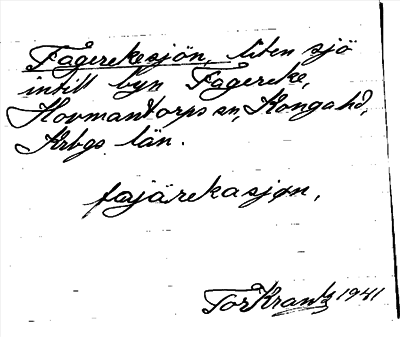 Fagerekesjön, liten sjö
intill byn Fågereke,
Hovmantorps sn, Konga hd,
Krbgs län.
fajärekasjøn,
Tor Krantz 1941